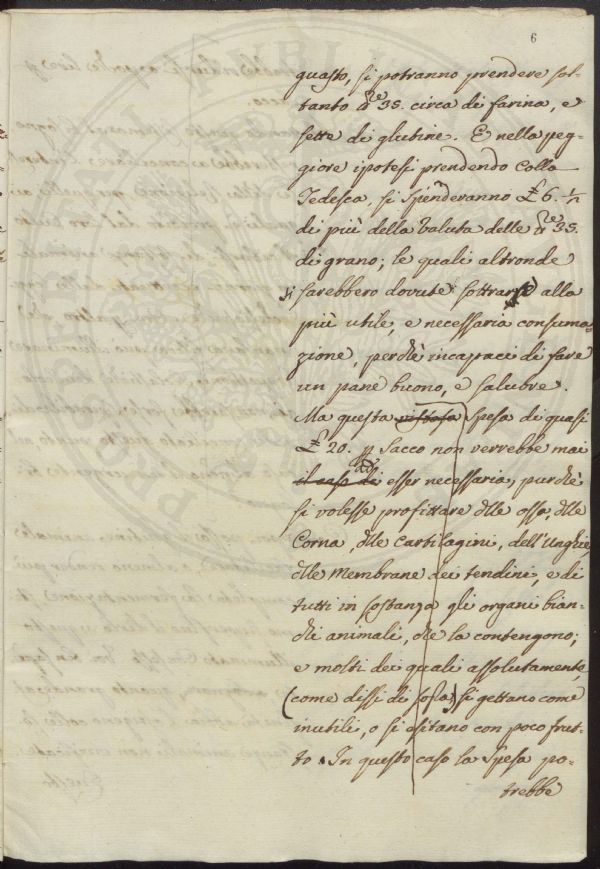 6
guasto, si potranno prendere sol-
tanto lb.re 35. circa di farina, e
sette di glutine. E nella peg-
giore ipotesi prendendo Colla
Tedesca, si Spenderanno £ 6. ½
di più della Valuta delle lb.re 35.
di grano; le quali altronde
si sarebbero dovute sottrarre alla
più utile, e necessaria consuma-
zione, perchè incapaci di fare
un pane buono, e salubre.
Ma questa vistosa Spesa di quasi
£ 20. p Sacco non verrebbe mai
il caso di ad esser necessaria, purchè
si volesse profittare dlle ossa, dlle
Corna, dlle Cartilagini, dell'Unghie
dlle Membrane dei tendini, e di
tutti in sostanza gli organi bian-
chi animali, che la contengono;
e molti dei quali assolutamente,
(come dissi di sopra) si gettano come
inutili, o si esitano con poco frut-
to. In questo caso la Spesa po-
trebbe